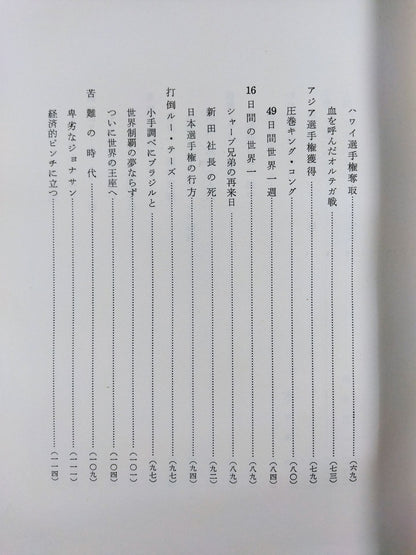 ハワイ選手権奪取……(六九)
血を呼んだオルテガ戦……(七三)
アジア選手権獲得……(七九)
圧巻キング・コング……(八〇)
49日間世界一週……(八四)
16日間の世界一……(八九)
シャープ兄弟の再来日……(八九)
新田社長の死……(九二)
日本選手権の行方……(九四)
打倒ルー・テーズ……(九七)
小手調べにブラジルと……(九七)
世界制覇の夢ならず……(一〇一)
ついに世界の王座へ……(一〇四)
苦難の時代……(一〇九)
卑劣なジョナサン……(一一一)
経済的ピンチに立つ……(一一四)